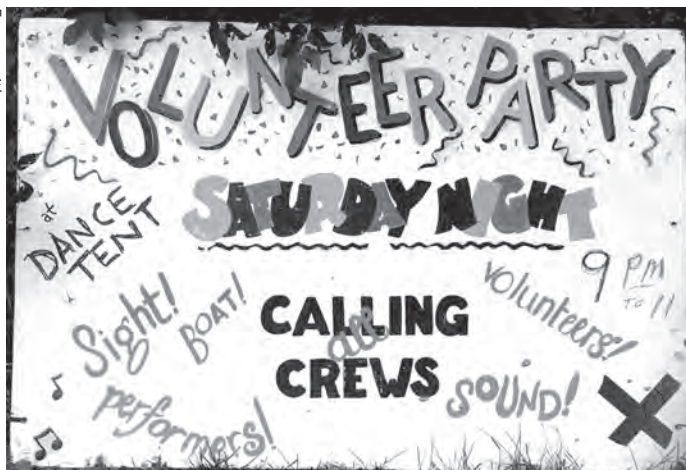 VOLUNTEER PARTY
SATURDAY NIGHT
at
DANCE
TENT
9 PM
TO 11
Sight!
BOAT!
CALLING
all
CREWS
volunteers!
performers!
SOUND!